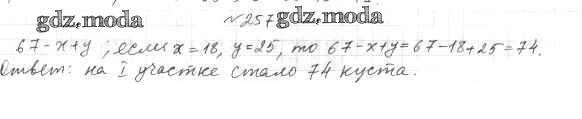 gdz.moda №257 gdz.moda
67-x+y; если x=18, y=25, то 67-x+y=67-18+25=74.
Ответ: на I участке стало 74 куста.